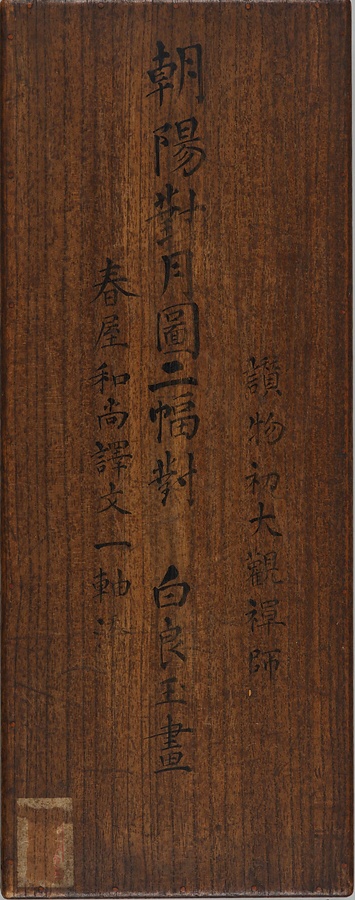 讃物初大觀禪師
朝陽對月圖二幅對 白良玉畫
春屋和尚譯文一軸